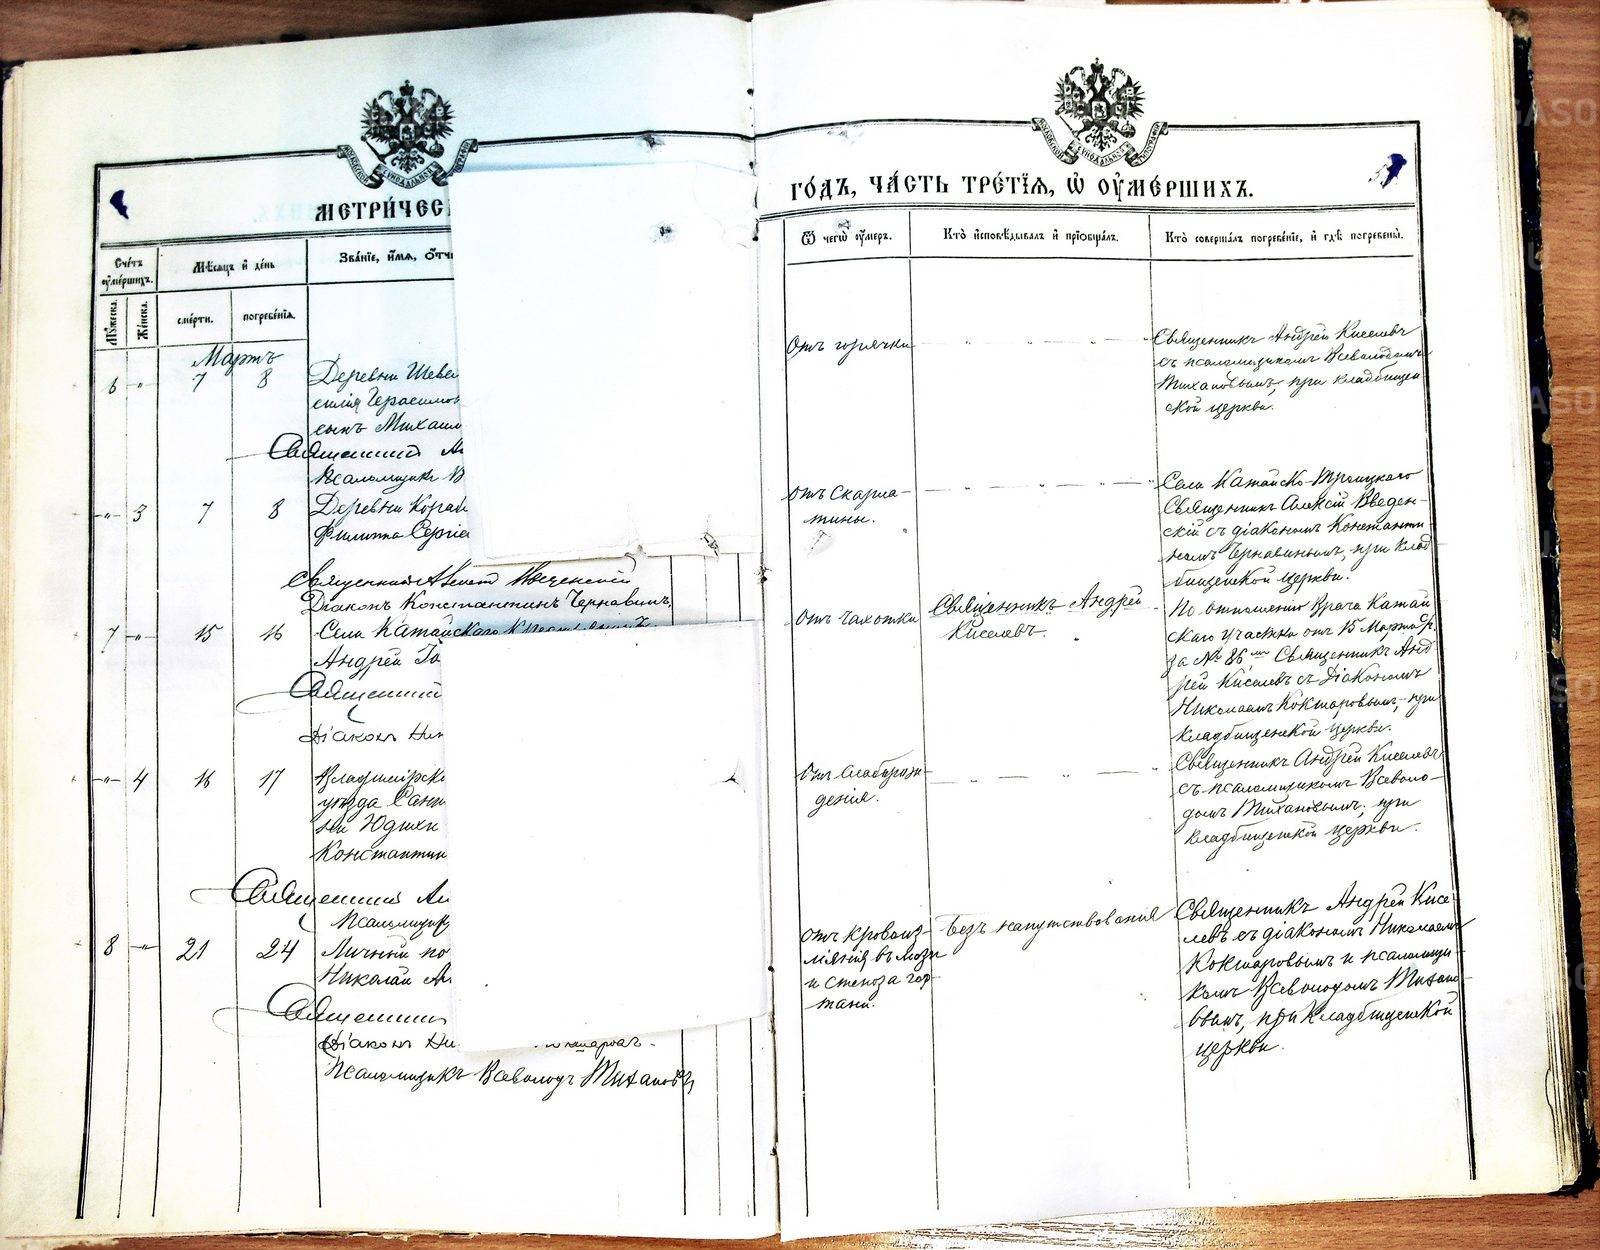 МЕТРИ́ЧЕС
ГО́ДЪ, ЧА́СТЬ ТРЕ́ТІѦ, Ѡ ОУМЕ́РШИХЪ.
Сче́тъ оуме́ршихъ.
Мѣ́сяцъ и де́нь
Зва́ніе, и́мя, о́тч
Му́жеска.
Же́нска.
сме́рти.
погребе́нія.
Ѿ чегѡ̀ оу́меръ.
Кто̀ и҆сповѣ́дывалъ и҆ прїѡбща́лъ.
Кто̀ соверша́лъ погребе́нїе, и҆ гдѣ̀ погребены̀.
Мартъ
6 -"- 7 8 Деревни Шеве
силія Герасимов
сынъ Михаил
Священник Ан
Псаломщикъ В
отъ горячки
Священникъ Андрей Киселевъ
съ псаломщикомъ Всеволодомъ
Тихановымъ, при кладбищен
ской церкви.
-"- 3 7 8 Деревни Кораб
Филиппа Сергіе
Священник Алексій Введенскій
Діаконъ Константинъ Чернавинъ
отъ скарла-
тины.
Села Катайско-Троицкаго
Священникъ Алексій Введен-
скій съ діакономъ Константи-
номъ Чернавинымъ, при клад
бищенской церкви.
7 -"- 15 16 Села Катайскаго
Андрей
Священник
Діаконъ Ник
отъ чахотки
Священникъ Андрей
Киселевъ.
По отношенію врача Катай
скаго участка отъ 15 Марта
за № 86 Священникъ Анд
рей Киселевъ съ діакономъ
Николаемъ Кокшаровымъ, при
кладбищенской церкви.
-"- 4 16 17 Владимірск
уѣзда
Юдихи
Константин
Священник Ан
Псаломщик
отъ слаборож-
денія.
Священникъ Андрей Киселевъ
съ псаломщикомъ Всеволо-
домъ Тихановымъ, при
кладбищенской церкви.
8 -"- 21 24 Личный по
Николай Ал
Священник
Діаконъ Ни
Псаломщикъ Всеволодъ Тихановъ
отъ кровоиз-
ліянія въ мозг
и стеноза гор-
тани.
Безъ напутствованія
Священникъ Андрей Кисе
левъ съ діакономъ Николаемъ
Кокшаровымъ и псаломщи-
комъ Всеволодомъ Тихано
вымъ, при кладбищенской
церкви.